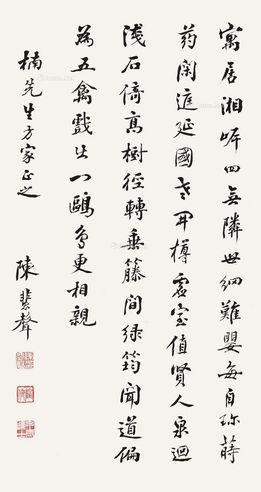 寓居湘岸四無隣世網難嬰每自珍蒔
药闲庭延國老开樽虛室值賢人泉迴
淺石倚高樹徑轉垂籐間绿筠聞道偏
為五禽戲出门鷗鳥更相親
楠先生方家正之
陳蜚聲